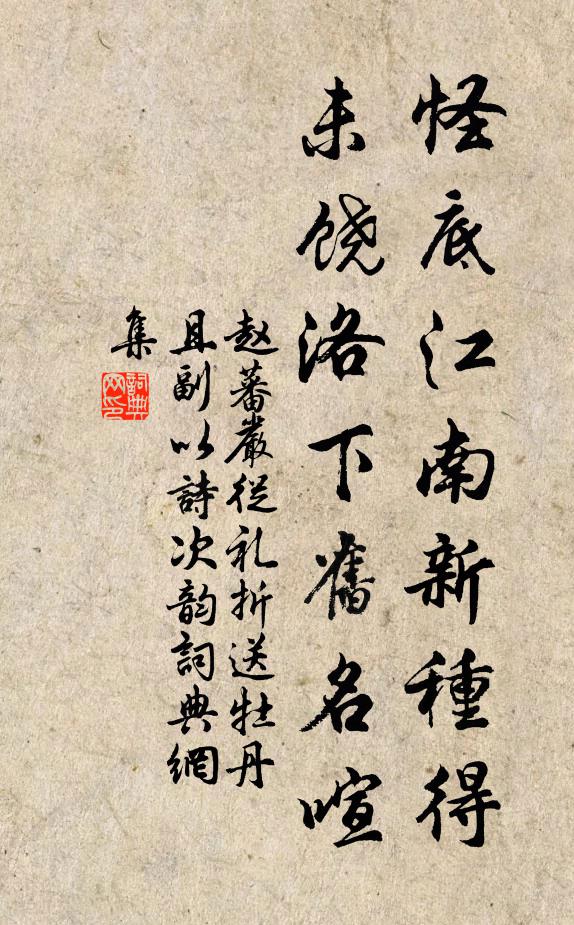 怪底江南新種得
未饶洛下舊名喧
赵蕃嚴從礼折送牡丹
且副以詩次韵詞典網
集
詞典网印